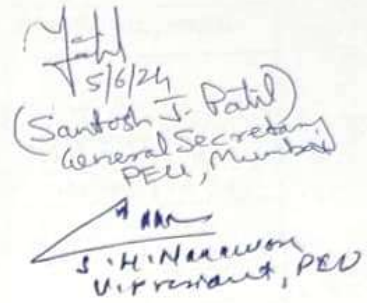 5/6/24
(Santosh J. Patil)
General Secretary
PEU, Mumbai
S.H.
V.President, PEU